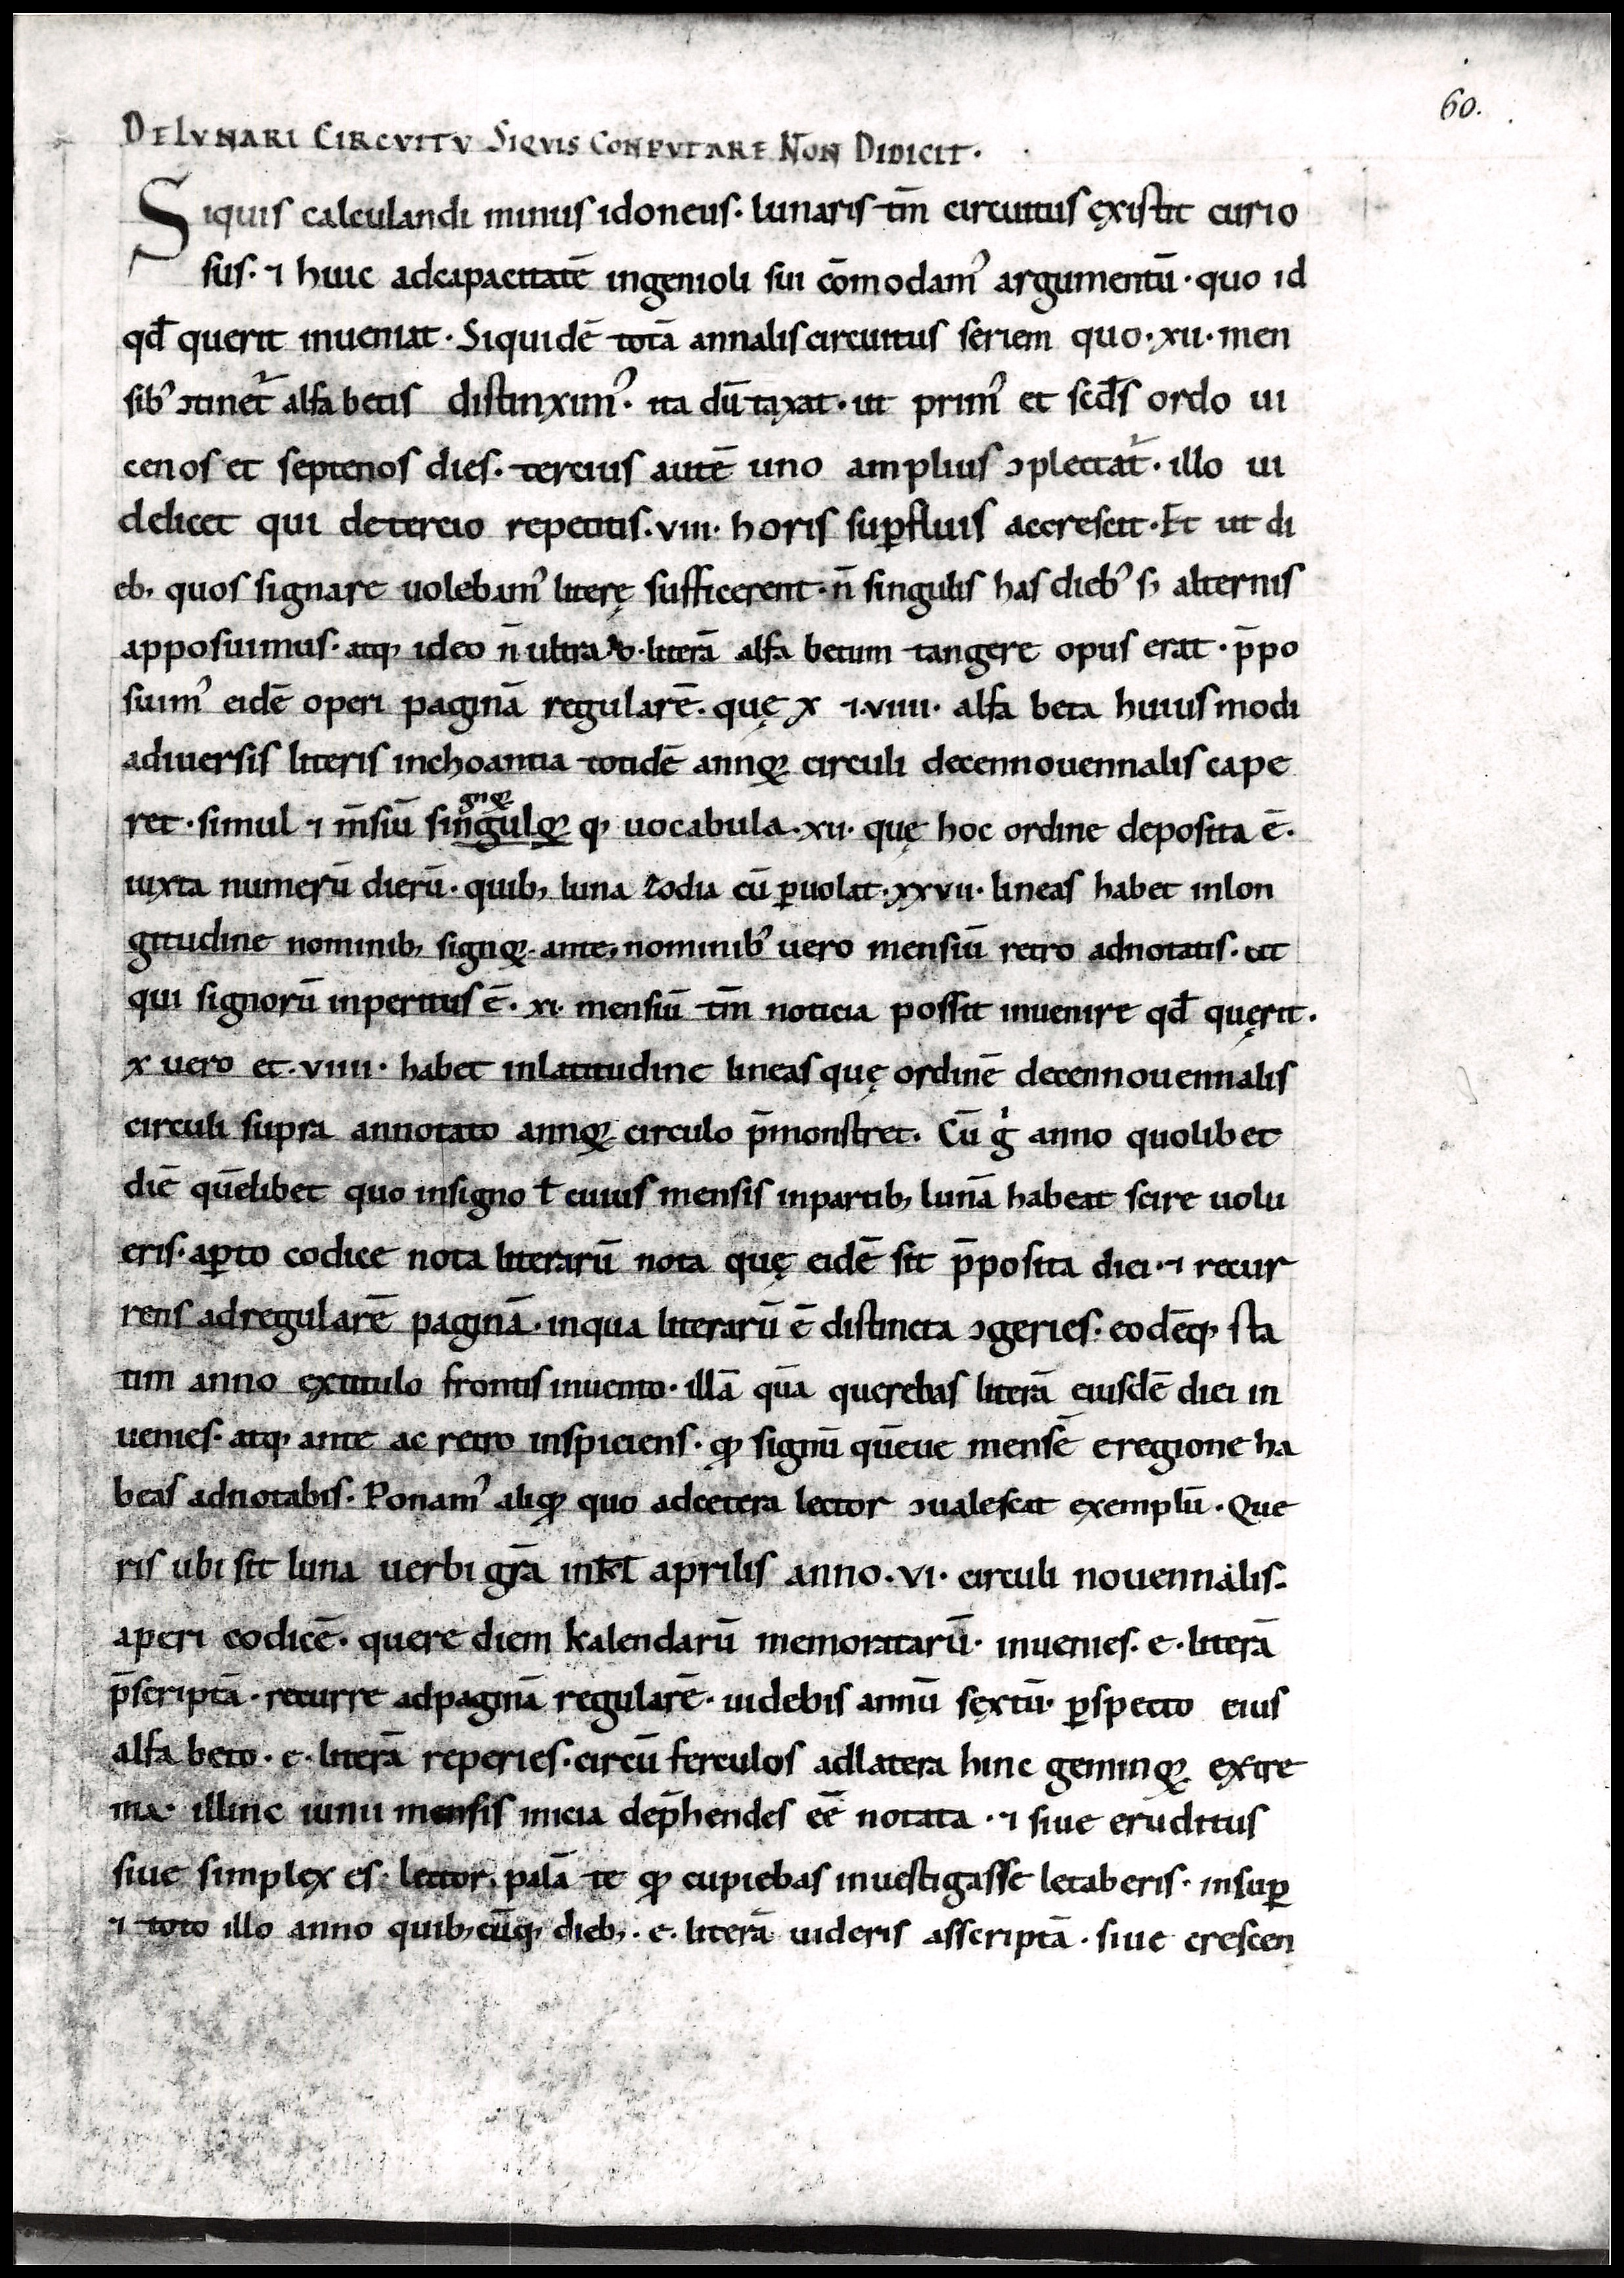 60.
DE LVNARI CIRCVITV SIQVIS CONPVTARE NON DIDICIT·
Siquis calculandi minus idoneus· lunaris tm̄ circuitus ęxistit curio
sus· ⁊ huic adcapacitatē ingenioli sui cōmodam᾽ argumentū· quo id
qđ querit inueniat· Siquidē totā annalis circuitus seriem quo·xii·men
sib᾽ ↄtinet᷑ alfa betis distinxim᾽· ita dū taxat· ut prim᾽ et scđs ordo ui
cenos et septenos dies· tercius autē uno amplius ↄplectat᷑· illo ui
delicet qui detercio repetitis·viii· horis suꝑfluis accrescit· Et ut di
eb; quos signare uolebam᾽ literę sufficerent· n̄ singulis has dieb᾽ s; alternis
apposuimus· atq; ideo n̄ ultra ·o·literā alfa betum tangere opus erat· p̄po
suim᾽ eidē operi paginā regularē· quę x ⁊·viiii· alfa beta huiusmodi
adiuersis literis inchoantia totidē annoꝝ circuli decennouennalis cape
ret· simul ⁊ m̄siū singuloꝝ q; uocabula·xii· quę hoc ordine deposita ē·
gnoꝝ
iuxta numerū dierū· quib; luna zodia cū ꝑuolat·xxvii· lineas habet inlon
gitudine nominib; signoꝝ· ante; nominib᾽ uero mensiū retro adnotatis· ut
qui signorū inperitus ē· xi· mensiū tm̄ noticia possit inuenire qđ quęrit·
x uero et·viiii· habet inlatitudine lineas quę ordinē decennouennalis
circuli supra annotato annoꝝ circulo p̄monstret· Cū gͥ anno quolibet
diē quēlibet quo insigno ł cuius mensis inpartib; lunā habeat scire uolu
eris· aꝑto codice nota literarū nota quę eidē sit p̄posita diei· ⁊ recur
rens adregularē paginā· inqua literarū ē distincta ↄgeries· eodēq; sta
tim anno ęxtitulo frontis inuento· illā quā querebas literā eiusdē diei in
uenies· atq; ante ac retro inspiciens· ꝙ signū quēue mensē eregione ha
beas adnotabis· Ponam᾽ aliꝙ quo adcetera lector ↄualescat exemplū· Que
ris ubi sit luna uerbi gr̄a inkƚ aprilis anno·vi· circuli nouennalis·
aperi codicē· quere diem kalendarū memoratarū· inuenies· e·literā
p̄scriptā· recurre adpaginā regularē· uidebis annū sęxtū· ꝑspecto eius
alfa beto· e·literā reperies· circū ferculos adlatera hinc geminoꝝ extre
ma· illinc iunii mensis inicia dep̄hendes eē notata· ⁊ siue eruditus
siue simplęx es· lector· palā te ꝙ cupiebas inuestigasse letaberis· insuꝑ
⁊ toto illo anno quib; cūq; dieb;· e·literā uideris asscriptā· siue crescen